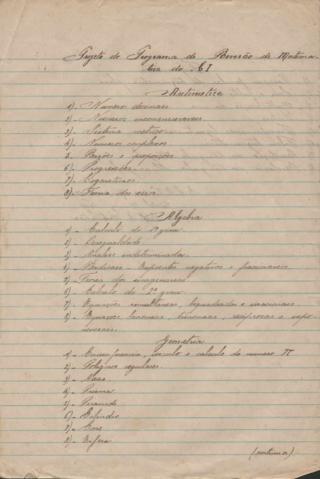 Projeto do Programa de Revisão de Matemá-
tica do CI
Aritmética
1)- Número decimais
2)- Números incomensuráveis
3)- Sistema métrico
4)- Números complexos
5- Razões e proporções
6)- Progressões
7)- Logaritmos
8)-
Algebra
1)- Calculo do 1º grau
2)- Desigualdade
3)- Análise indeterminada
4)- Radicais. Expoentes negativos e fracionarios
5)- Teoria dos imaginarios
6)- Calculo do 2º grau
7)- Equações biquadradas e
8)- Equações binomias, trinomias, reciprocas e expo-
nenciais.
Geometria
1)- Circunferencia, circulo e calculo do numero π
2)- Poligonos regulares
3)- Areas
4)- Prisma
5)- Piramide
6)- Cilindro
7)- Cone
8)- Esfera
(continua)